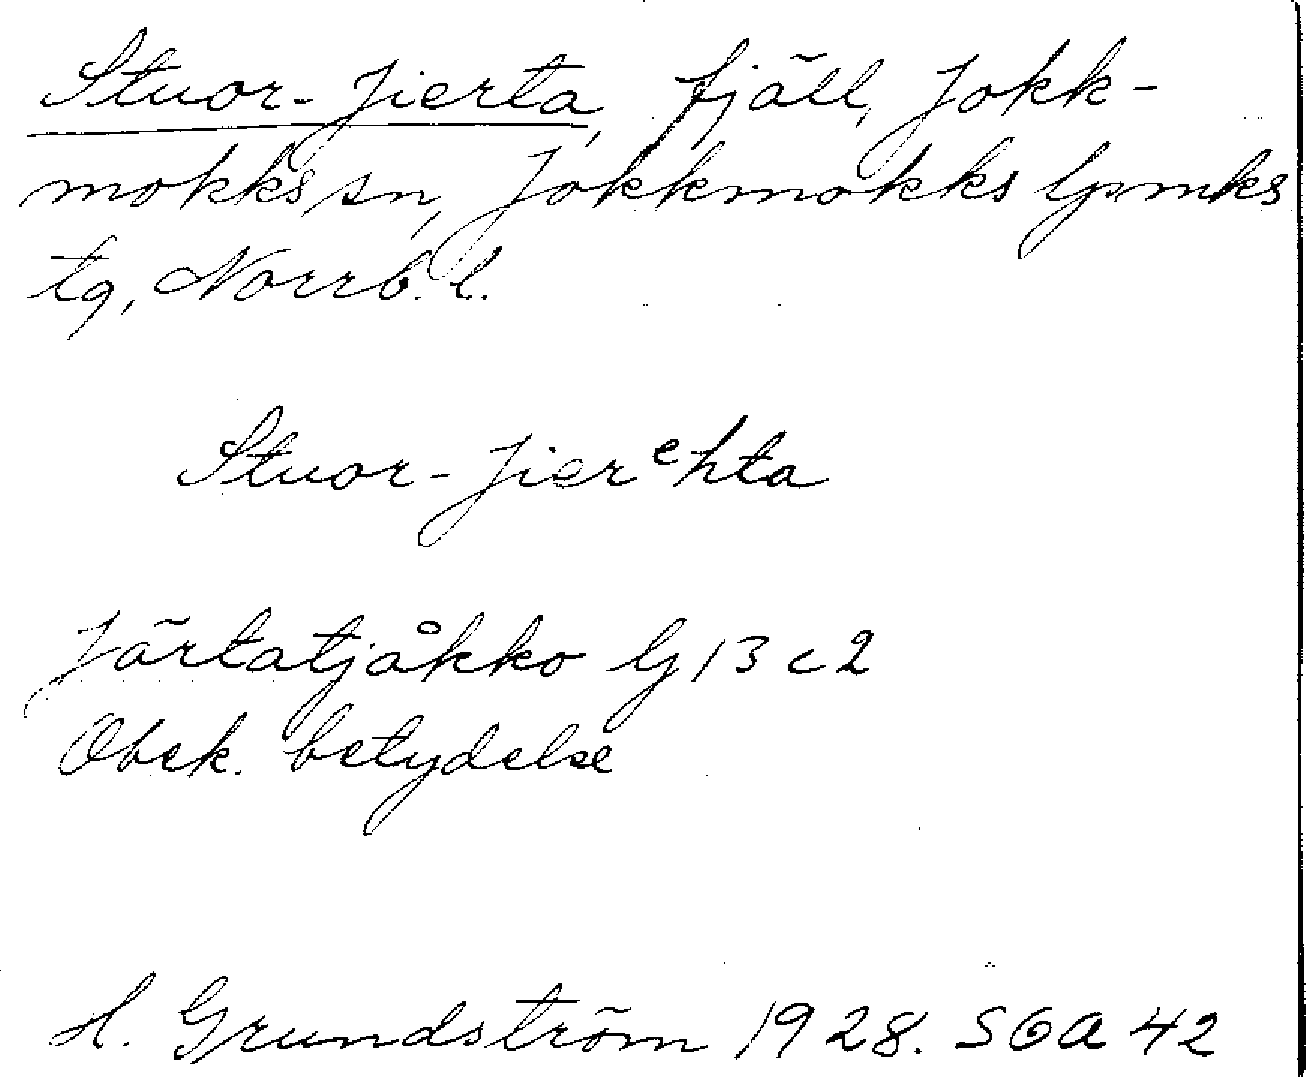 Stuor-Jierta, fjäll, Jokk-
mokks sn, Jokkmokks lpmks
tg, Norrb. l.
Stuor-Jierᵉhta
Järtatjåkko lj 13 c 2
Obek. betydelse
H. Grundström 1928. SOA 42